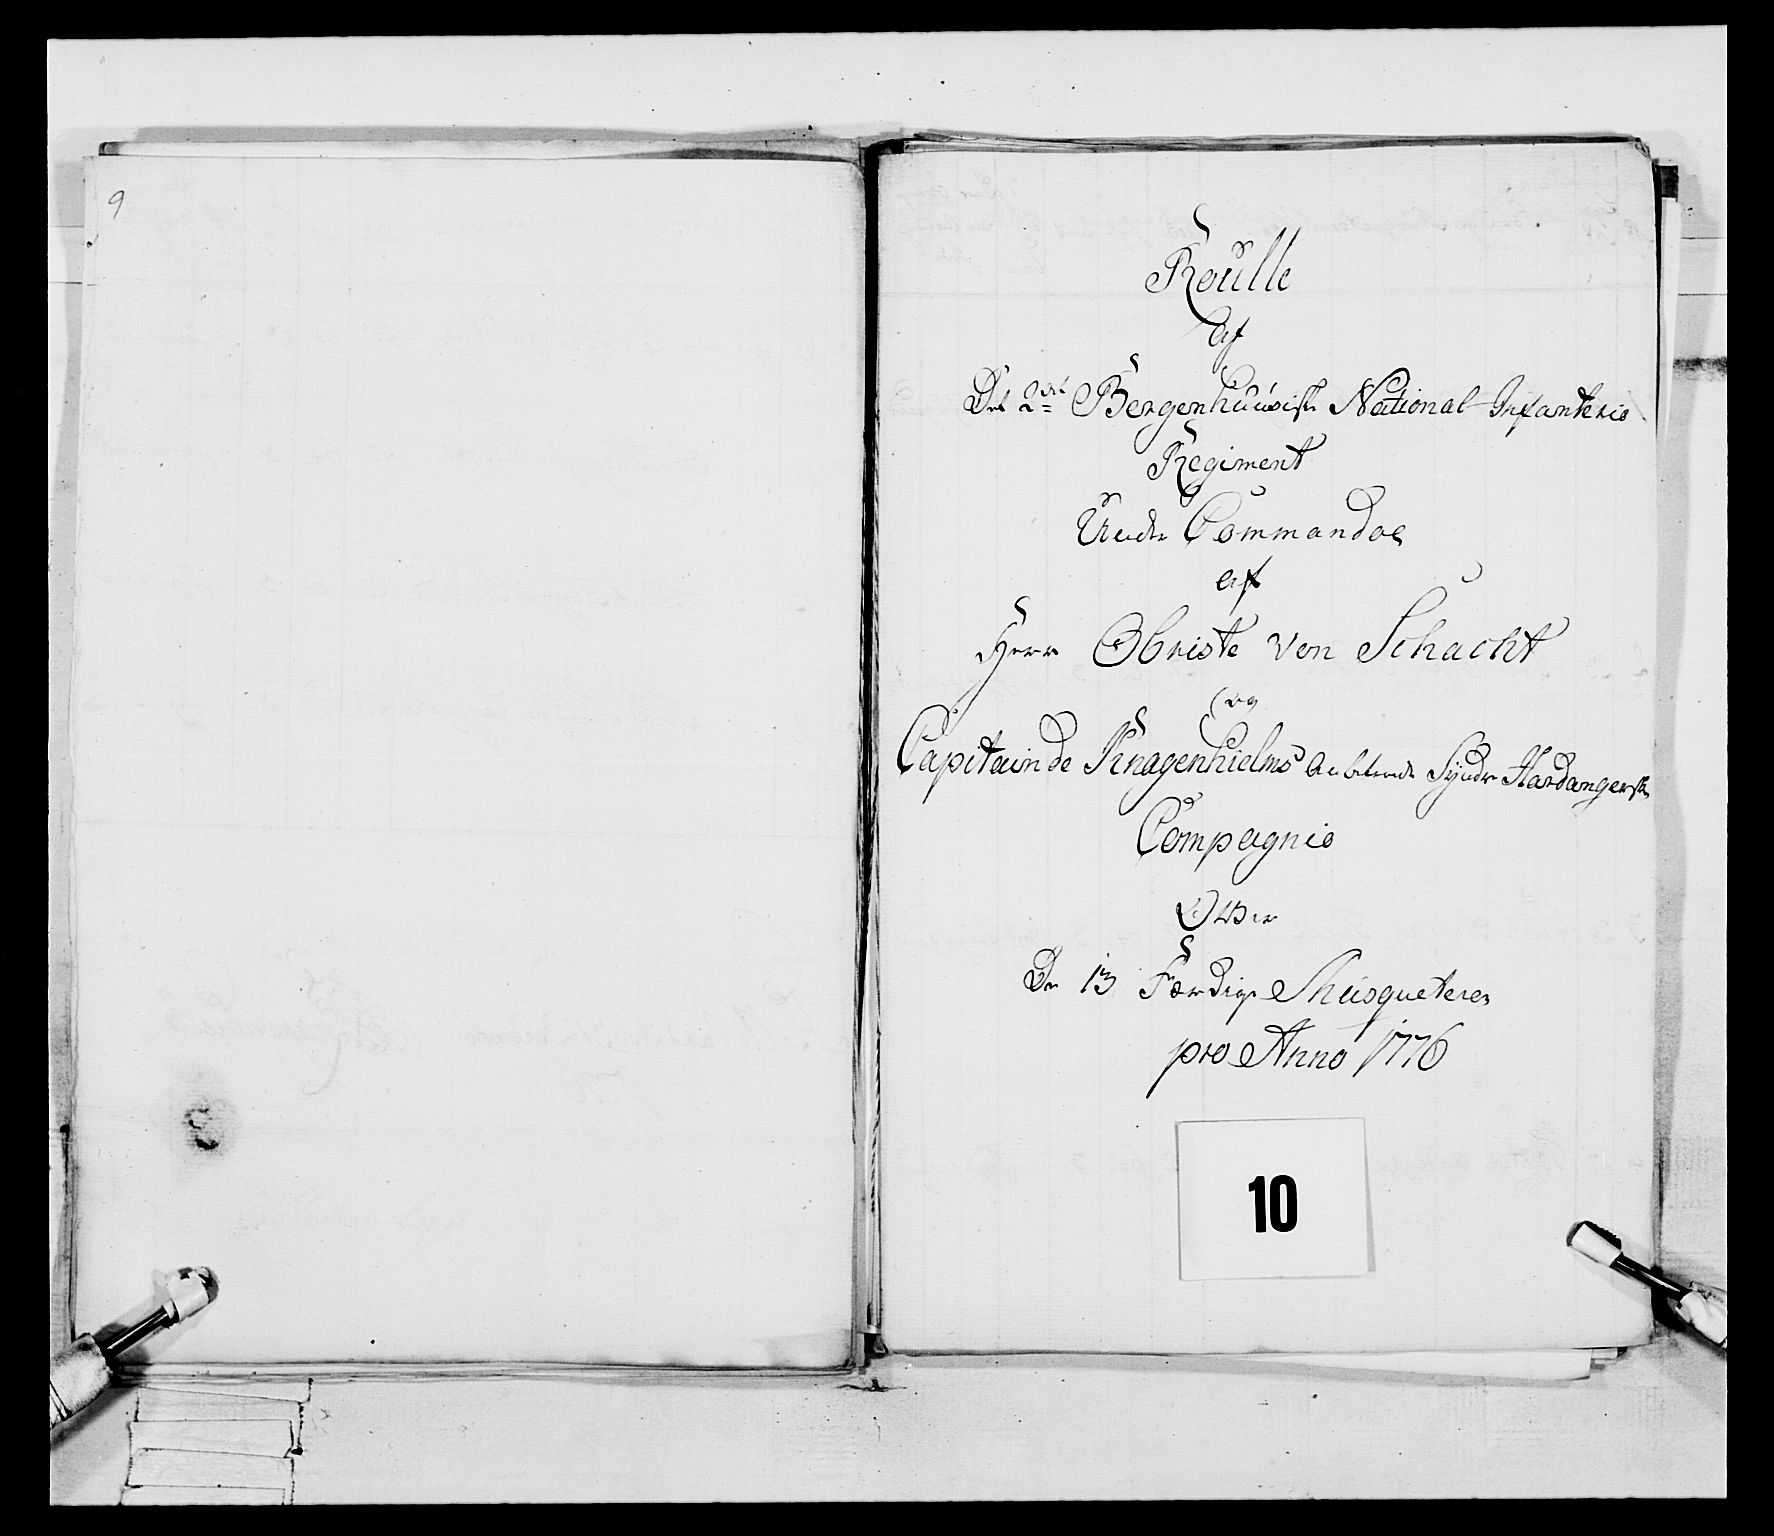 9
Roulle
af
Det 2det Bergenhuusiske National Infanterie
Regiment
Under Commandoe
af
Herr Obriste von Schacht
og
Capitain de Knagenhielms anbetroede Syndre Hardangerske
Compagnie
Over
De 13 Færdige Musqueterer
pro Anno 1776
10